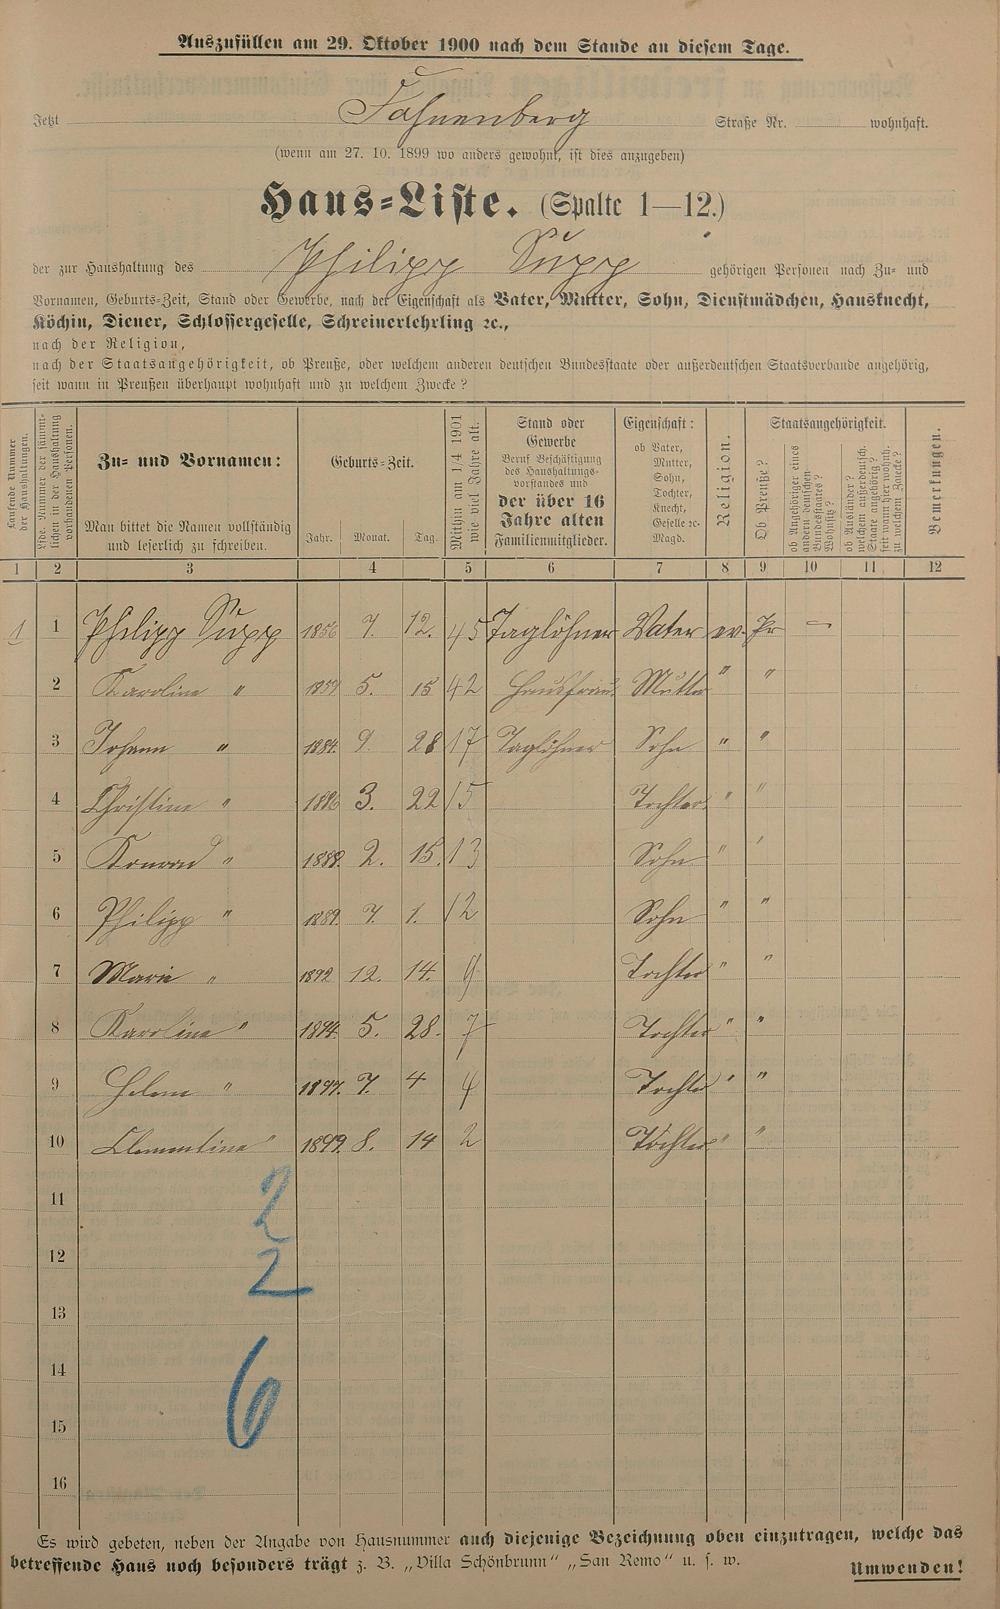 Auszufüllen am 29. Oktober 1900 nach dem Stande an diesem Tage.
Jetzt Fahnenberg Straße Nr. wohnhaft.
(wenn am 27. 10. 1899 wo anders gewohnt, ist dies anzugeben)
Haus-Liste. (Spalte 1—12.)
der zur Haushaltung des Philipp Supp gehörigen Personen nach Zu- und
Vornamen, Geburts-Zeit, Stand oder Gewerbe, nach der Eigenschaft als Vater, Mutter, Sohn, Dienstmädchen, Hausknecht,
Köchin, Diener, Schlossergeselle, Schreinerlehrling ꝛc.,
nach der Religion,
nach der Staatsangehörigkeit, ob Preuße, oder welchem anderen deutschen Bundesstaate oder außerdeutschen Staatsverbande angehörig,
seit wann in Preußen überhaupt wohnhaft und zu welchem Zwecke?
Laufende Nummer
der Haushaltungen.
Lfde. Nummer der sämmt-
lichen in der Haushaltung
vorhandenen Personen.
Zu- und Vornamen:
Man bittet die Namen vollständig
und leserlich zu schreiben.
Geburts-Zeit.
Jahr. Monat. Tag.
Mithin am 1/4 1901
wie viel Jahre alt.
Stand oder
Gewerbe
Beruf Beschäftigung
des Haushaltungs-
vorstandes und
der über 16
Jahre alten
Familienmitglieder.
Eigenschaft:
ob Vater,
Mutter,
Sohn,
Tochter,
Knecht,
Geselle ꝛc.
Magd.
Religion.
Staatsangehörigkeit.
Ob Preuße?
ob Angehöriger eines
andern deutschen
Bundesstaates?
Wohnsitz?
ob Ausländer?
welchem außerdeutsch.
Staate angehörig?
seit wann hier wohnh.
zu welchem Zwecke?
Bemerkungen.
1 2 3 4 5 6 7 8 9 10 11 12
1 1 Philipp Supp 1856 7. 12. 45 Taglöhner Vater ev. Pr —
2 Karoline " 1859 5. 15 42 Hausfrau Mutter " "
3 Johann " 1884. 9. 28 17 Taglöhner Sohn " "
4 Christine " 1886 3. 22 15 Tochter " "
5 Konrad " 1888. 2. 15. 13 Sohn " "
6 Philipp " 1889. 7. 1. 12 Sohn " "
7 Marie " 1892 12. 14. 9 Tochter " "
8 Karoline " 1894. 5. 28. 7 Tochter " "
9 Helene " 1897. 7. 4 4 Tochter " "
10 Clementine " 1899. 8. 14 2 Tochter " "
11
2
12
2
13
14
6
15
16
Es wird gebeten, neben der Angabe von Hausnummer auch diejenige Bezeichnung oben einzutragen, welche das
betreffende Haus noch besonders trägt z. B. „Villa Schönbrunn“ „San Remo“ u. s. w.
Umwenden!